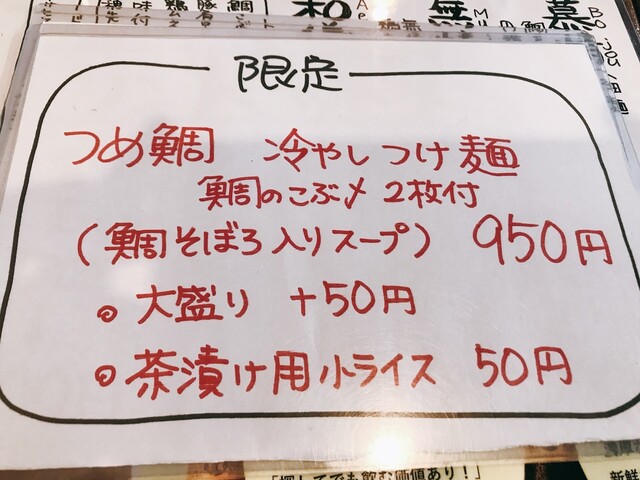 限定
つめ鯛 冷やしつけ麺
鯛のこぶ〆 2枚付
(鯛そぼろ入りスープ) 950円
◎ 大盛り +50円
◎ 茶漬け用小ライス 50円